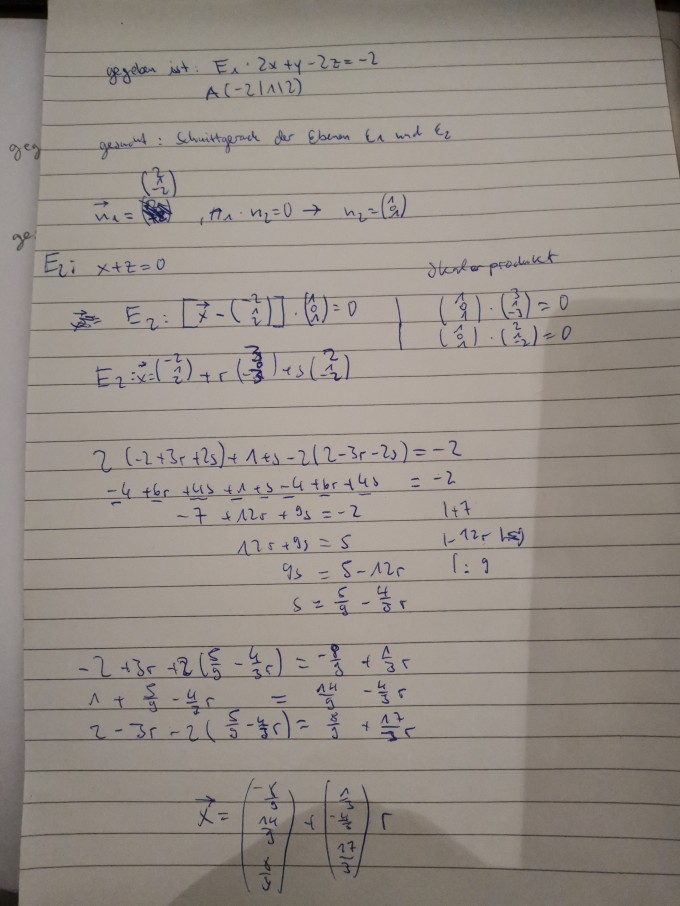 gegeben ist: E₁ : 2x+y-2z=-2
A(-2|1|2)
gesucht: Schnittgerade der Ebenen E₁ und E₂
geg
(2 1 -2)
n₁ = , n₁ · n₂=0 → n₂=(1 0 1)
ge
E₂: x+z=0
Skalarprodukt
E₂: [x⃗ - (-2 1 2)] · (1 0 1)=0 | (1 0 1) · (3 1 -3) = 0
E₂: x⃗=(-2 1 2) + r (3 -3) + s (2 1 -2) | (1 0 1) · (2 1 -2) = 0
2(-2+3r+2s)+1+s-2(2-3r-2s)=-2
-4 +6r +4s +1 +s -4 +6r +4s = -2
-7 +12r + 9s = -2 |+7
12r+9s = 5 |-12r
9s = 5-12r |: 9
s = 5/9 - 4/3 r
-2 +3r +2(5/9 - 4/3 r) = -8/9 + 1/3 r
1 + 5/9 - 4/3 r = 14/9 - 4/3 r
2 - 3r - 2(5/9 - 4/3 r) = 8/9 + 17/3 r
x⃗ = (-8/9 14/9 8/9) + (1/3 -4/3 17/3) r